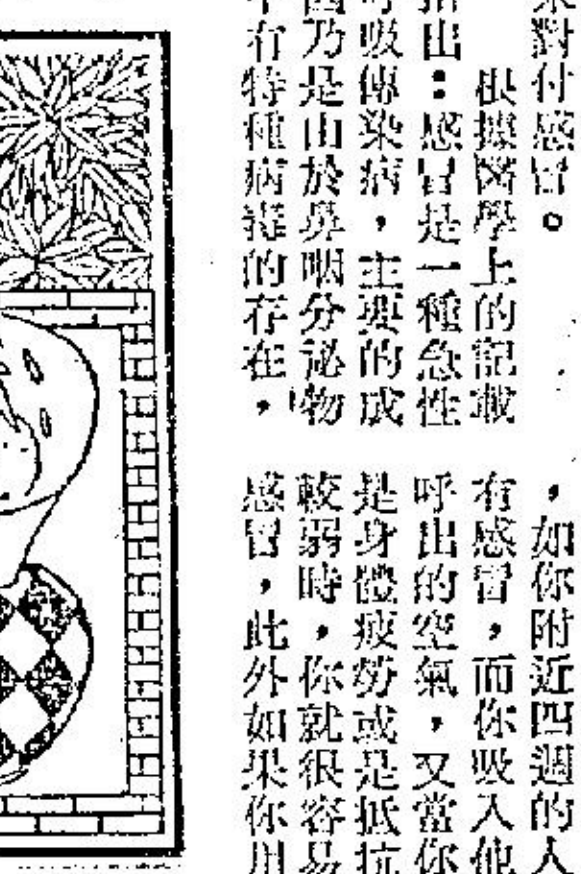 來對付感冒。
根據醫學上的記載
指出：感冒是一種急性
呼吸傳染病，主要的成
因乃是由於鼻咽分泌物
中有特種病毒的存在，
，如你附近四週的人
有感冒，而你吸入他
呼出的空氣，又當你
是身體疲勞或是抵抗
較弱時，你就很容易
感冒，此外如果你用